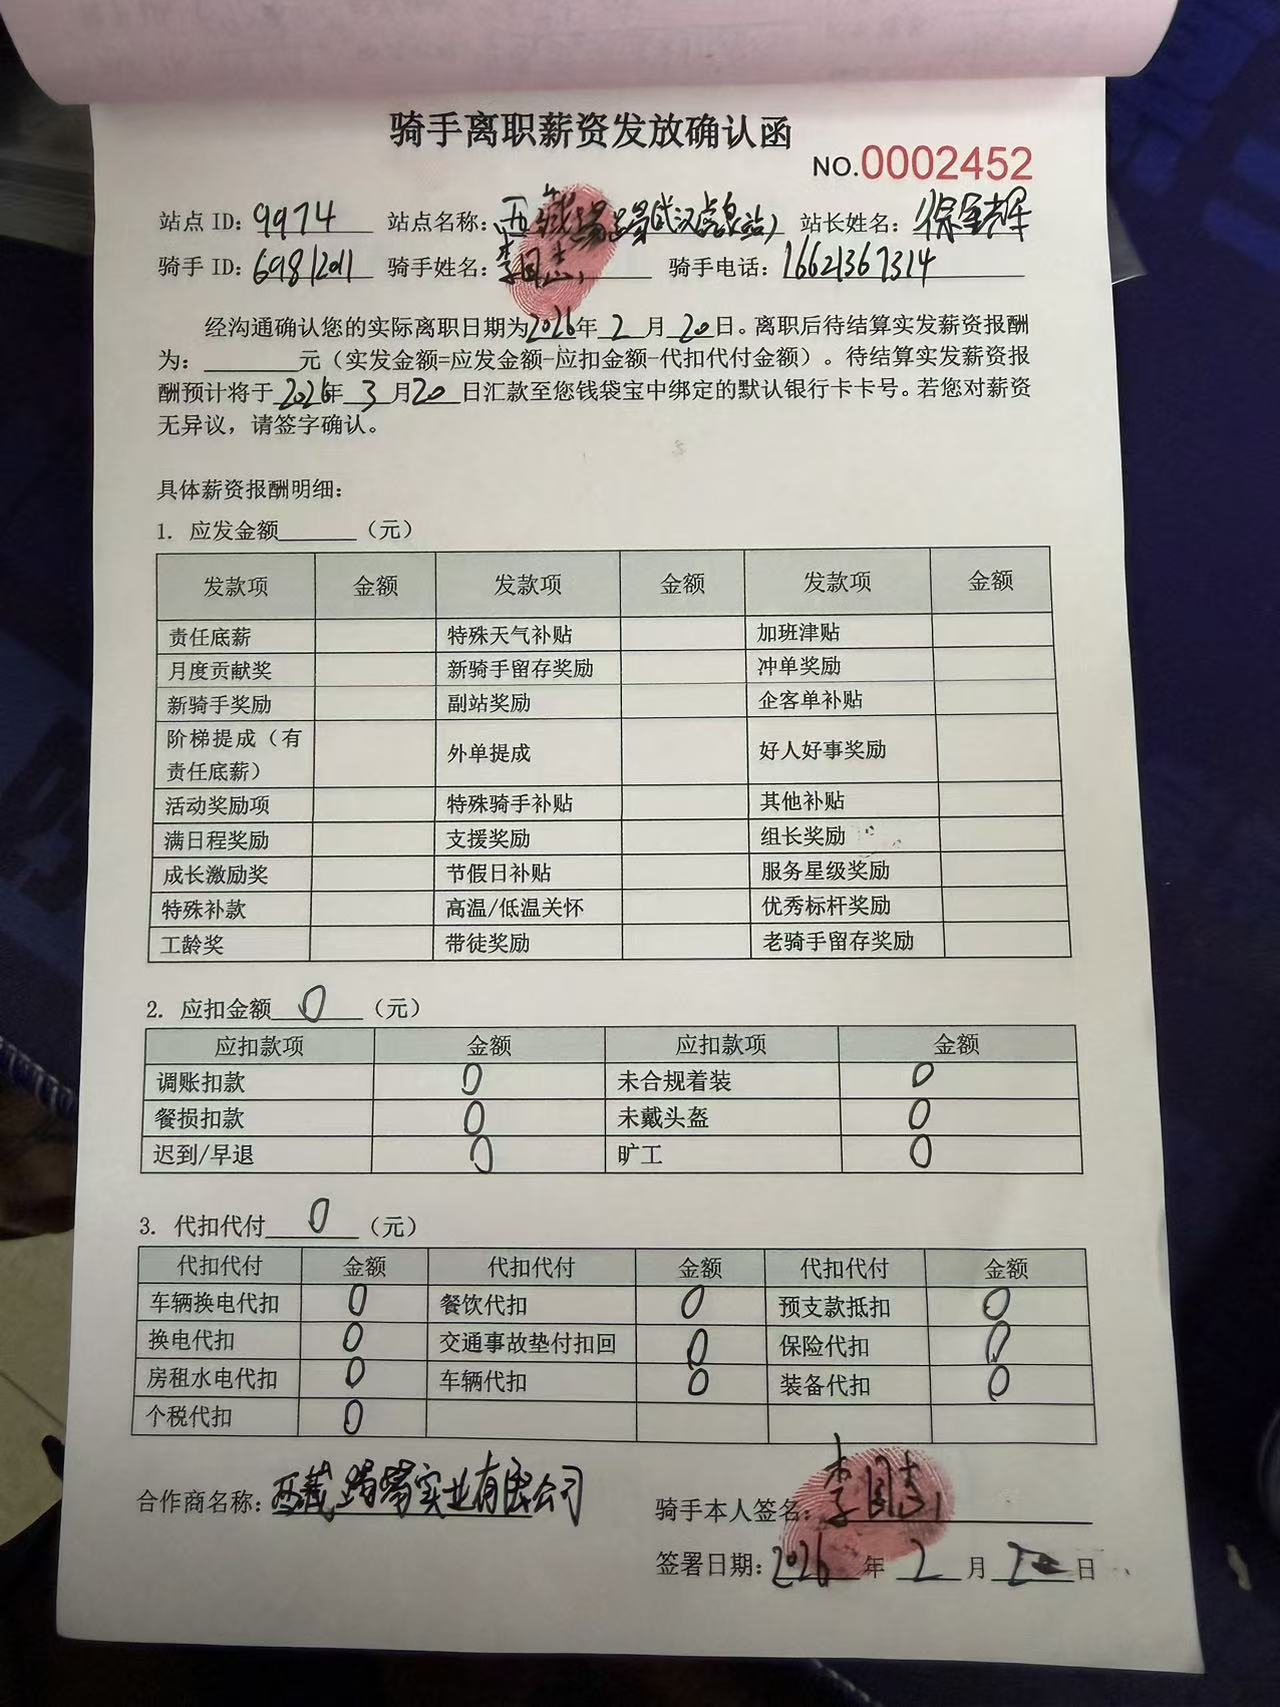 骑手离职薪资发放确认函
NO.0002452
站点 ID: 9974 站点名称: 西藏 (武汉 站) 站长姓名: 徐 辉
骑手 ID: 骑手姓名: 李 志 骑手电话: 16621367314
经沟通确认您的实际离职日期为2026年 2 月 20日。离职后待结算实发薪资报酬
为: 元（实发金额=应发金额-应扣金额-代扣代付金额）。待结算实发薪资报
酬预计将于 2026年 3 月20 日汇款至您钱袋宝中绑定的默认银行卡卡号。若您对薪资
无异议，请签字确认。
具体薪资报酬明细：
1. 应发金额 （元）
发款项 金额 发款项 金额 发款项 金额
责任底薪 特殊天气补贴 加班津贴
月度贡献奖 新骑手留存奖励 冲单奖励
新骑手奖励 副站奖励 企客单补贴
阶梯提成（有责任底薪） 外单提成 好人好事奖励
活动奖励项 特殊骑手补贴 其他补贴
满日程奖励 支援奖励 组长奖励
成长激励奖 节假日补贴 服务星级奖励
特殊补款 高温/低温关怀 优秀标杆奖励
工龄奖 带徒奖励 老骑手留存奖励
2. 应扣金额 0 （元）
应扣款项 金额 应扣款项 金额
调账扣款 0 未合规着装 0
餐损扣款 0 未戴头盔 0
迟到/早退 0 旷工 0
3. 代扣代付 0 （元）
代扣代付 金额 代扣代付 金额 代扣代付 金额
车辆换电代扣 0 餐饮代扣 0 预支款抵扣 0
换电代扣 0 交通事故垫付扣回 0 保险代扣 0
房租水电代扣 0 车辆代扣 0 装备代扣 0
个税代扣 0
合作商名称: 西藏 实业有限公司
骑手本人签名: 李 志
签署日期: 2026 年 2 月 日